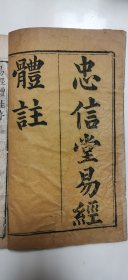 忠信堂易經
體註